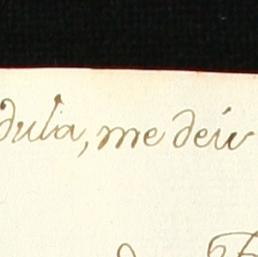 dula, me deu